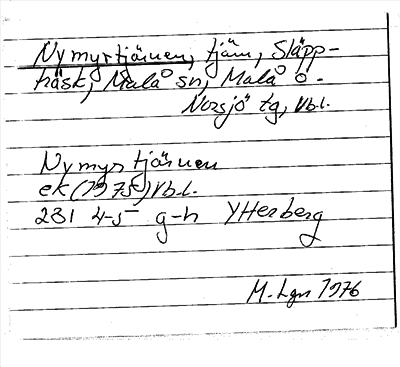 Nymyrtjärnen, tjärn, Släpp-
träsk, Malå sn, Malå o -
Norsjö tg, Vbl.
Nymyrstjärnen
ek (1975) Vbl.
231 4-5 g-h Ytterberg
M. Lgn 1976